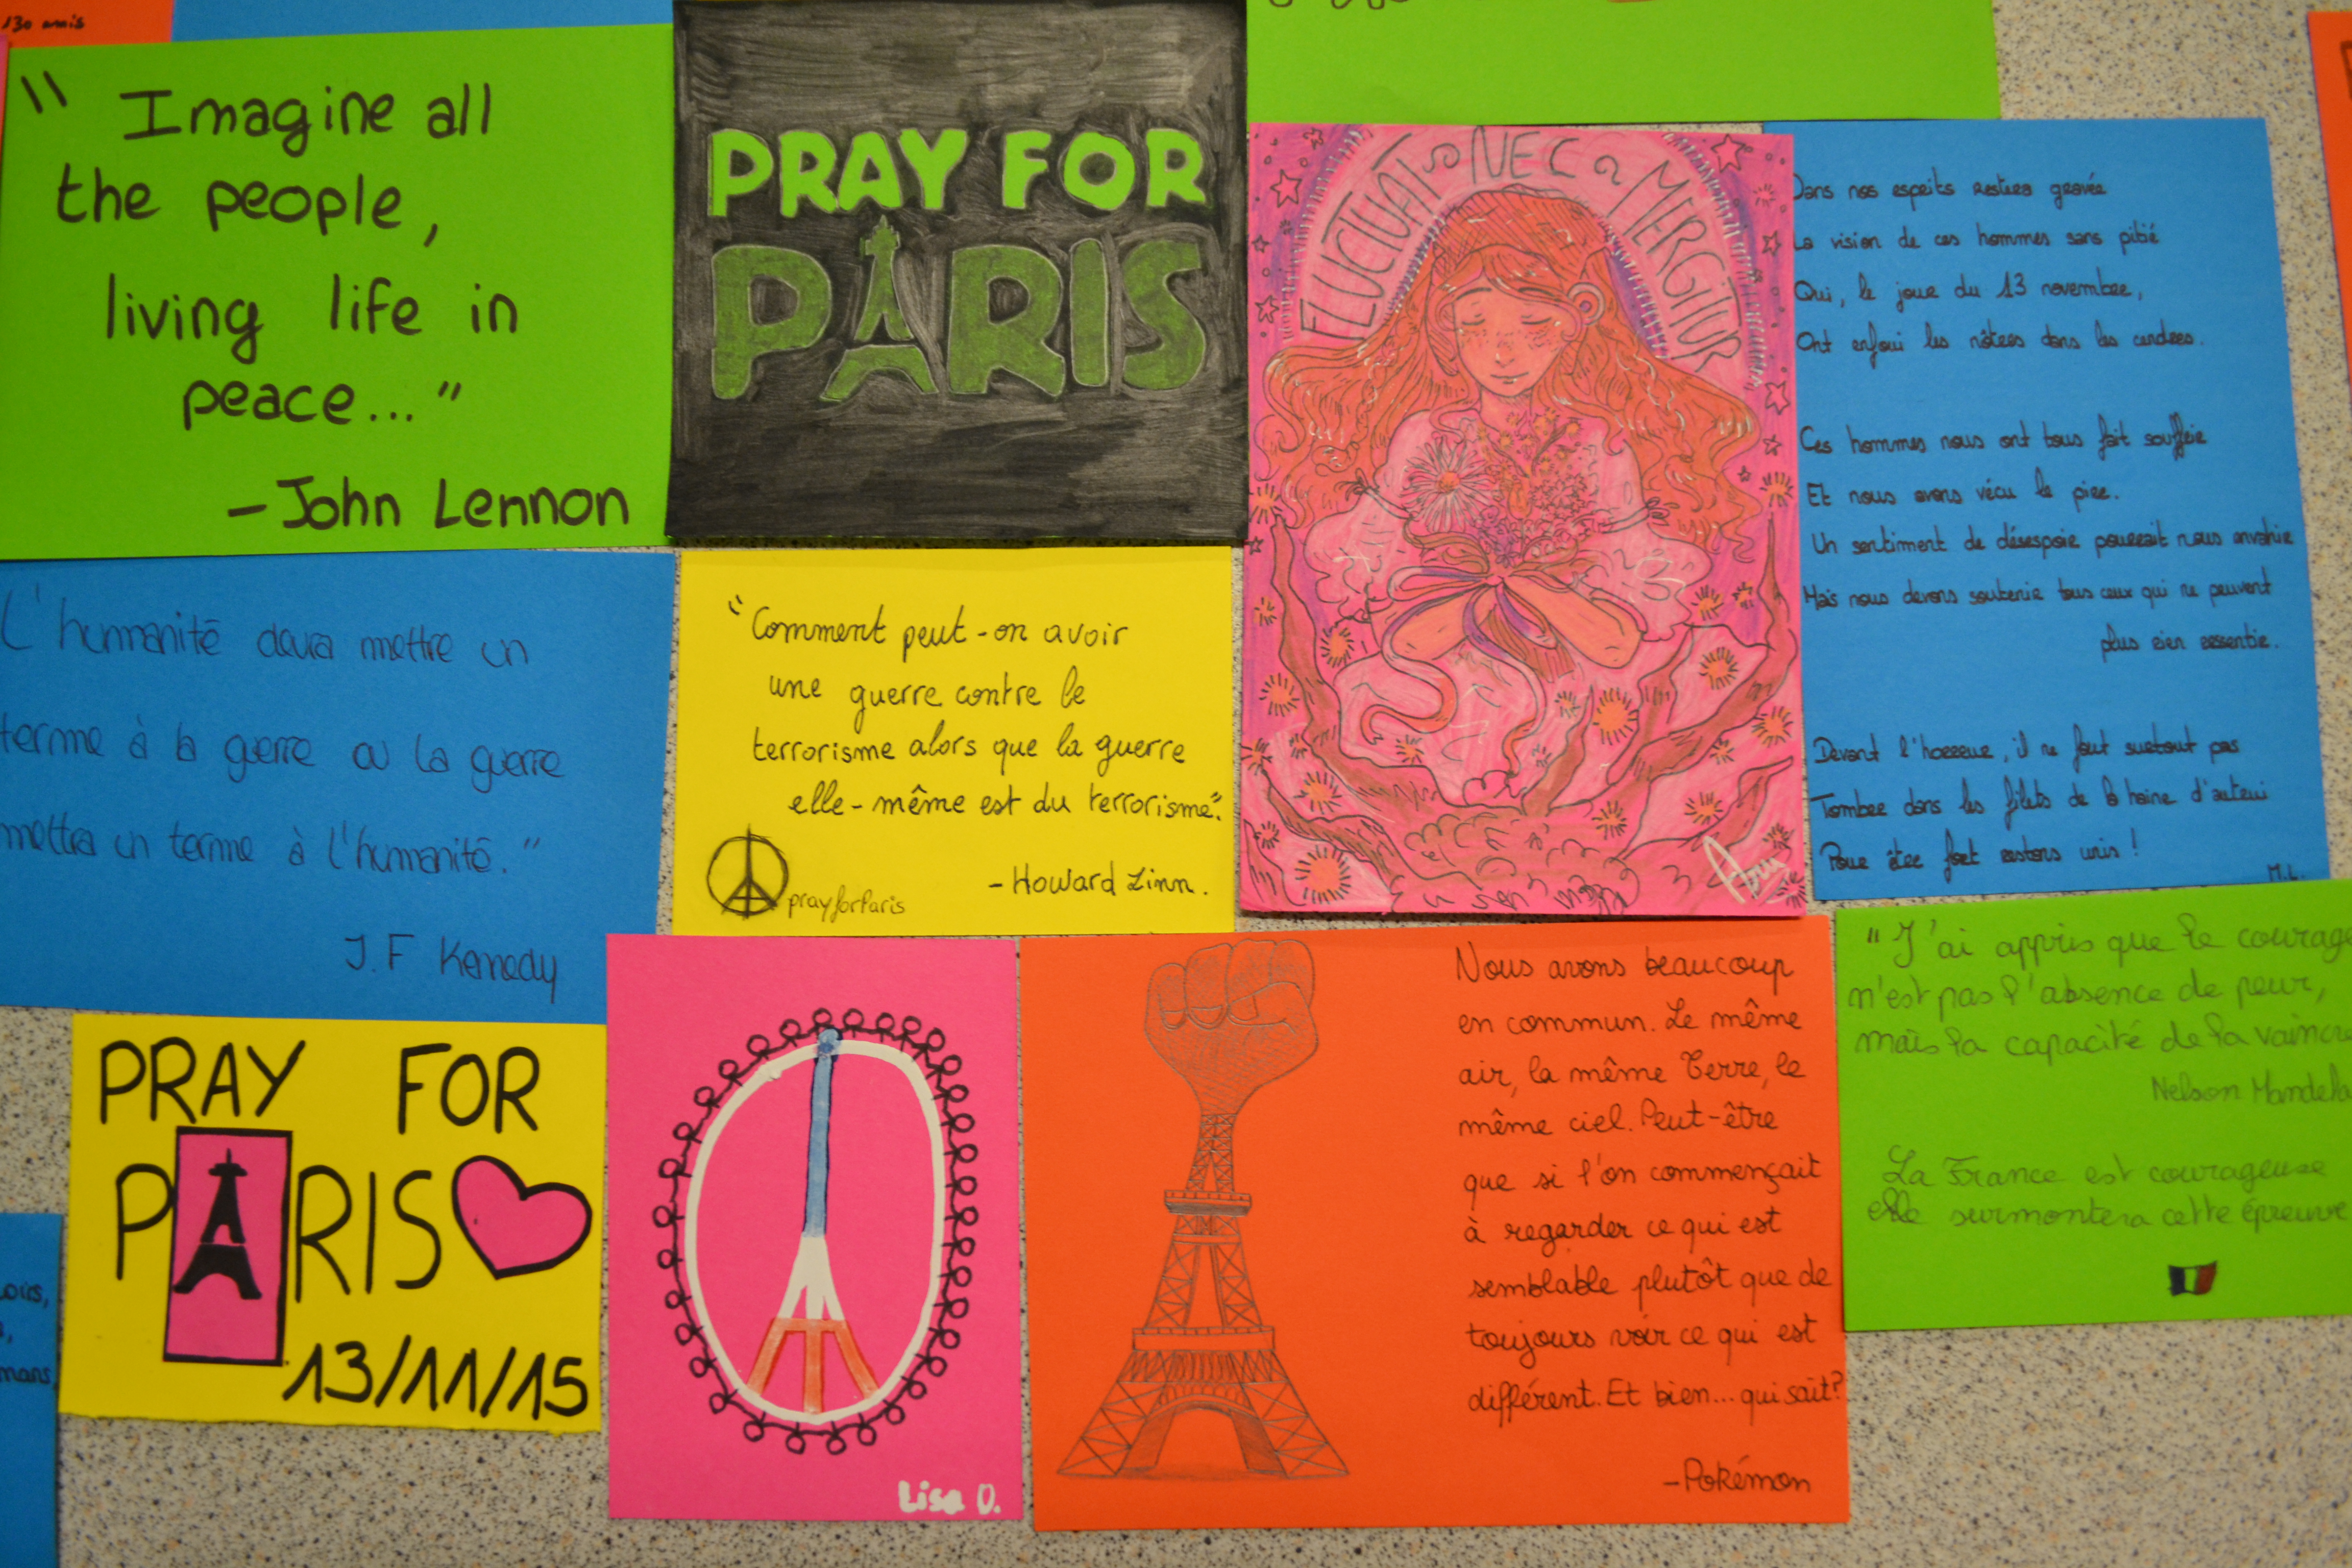 130 amis
" Imagine all
the people,
living life in
peace..."
- John Lennon
PRAY FOR
PARIS
FLUCTUAT NEC MERGITUR
Dans nos esprits restera gravée
La vision de ces hommes sans pitié
Qui, le jour du 13 novembre,
Ont enfoui les nôtres dans les cendres.
Ces hommes nous ont tous fait souffrir
Et nous avons vécu le pire.
Un sentiment de désespoir pourrait nous envahir
Mais nous devons soutenir tous ceux qui ne peuvent
plus rien ressentir.
Devant l'horreur, il ne faut surtout pas
Tomber dans les filets de la haine d'autrui
Pour être fort restons unis !
M.L.
L'humanité devra mettre un
terme à la guerre ou la guerre
mettra un terme à l'humanité."
J.F Kenedy
"Comment peut-on avoir
une guerre contre le
terrorisme alors que la guerre
elle-même est du terrorisme".
- Howard Zinn.
prayforParis
PRAY FOR
PARIS
13/11/15
Lisa D.
Nous avons beaucoup
en commun. Le même
air, la même Terre, le
même ciel. Peut-être
que si l'on commençait
à regarder ce qui est
semblable plutôt que de
toujours voir ce qui est
différent. Et bien... qui sait?
- Pokémon
"J'ai appris que le courage
n'est pas l'absence de peur,
mais la capacité de la vaincre
Nelson Mandela
La France est courageuse
elle surmontera cette épreuve